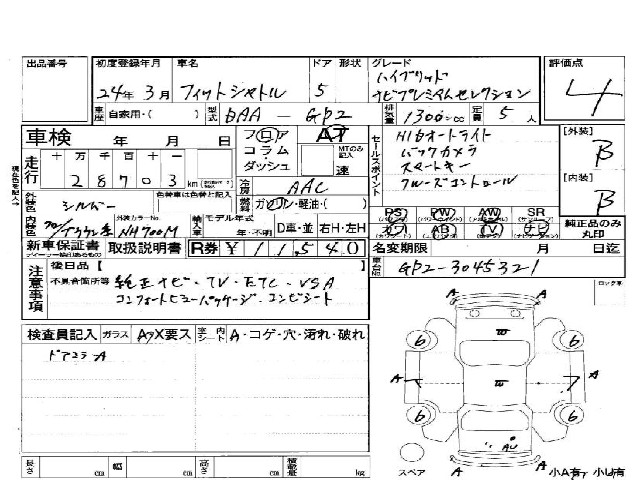 出品番号
初度登録年月 車名 ドア 形状 グレード 評価点
24年3月 フィットシャトル 5 ハイブリッド
ナビプレミアムセレクション 4
車歴 自家用・( ) 型式 DAA - GP2 排気量 1300 cc 定員 5 人
車検 年 月 日
フロア コラム ダッシュ AT MTのみ記入 速
セールスポイント
HIDオートライト
バックカメラ
スマートキー
クルーズコントロール
[外装] B
[内装] B
走行 十万千百十一
28703 km
冷房 AAC
外装色 シルバー 色替車は色替と記入
燃料 ガソリン・軽油・( )
内装色 イワウン系 外装カラーNo. NH700M
輸入車 モデル年式 年・不明 D車・並 右H・左H
PS PW AW SR
カワ AB TV ナビ
純正品のみ丸印
新車保証書 取扱説明書 R券 ¥11,540 名変期限 月 日迄
注意事項 後日品【 】
不具合箇所等 純正ナビ・TV・ETC・VSA
コンフォートビューパッケージ・コンビシート
車台No. GP2-3045321
検査員記入 ガラス A,X要ス 室内 シート A・コゲ・穴・汚れ・破れ
ドアミラA
A A
6 6
6 6
A A
AU
A A
スペア 小A有, 小U有
長さ cm 幅 cm 高さ cm 積載量 kg